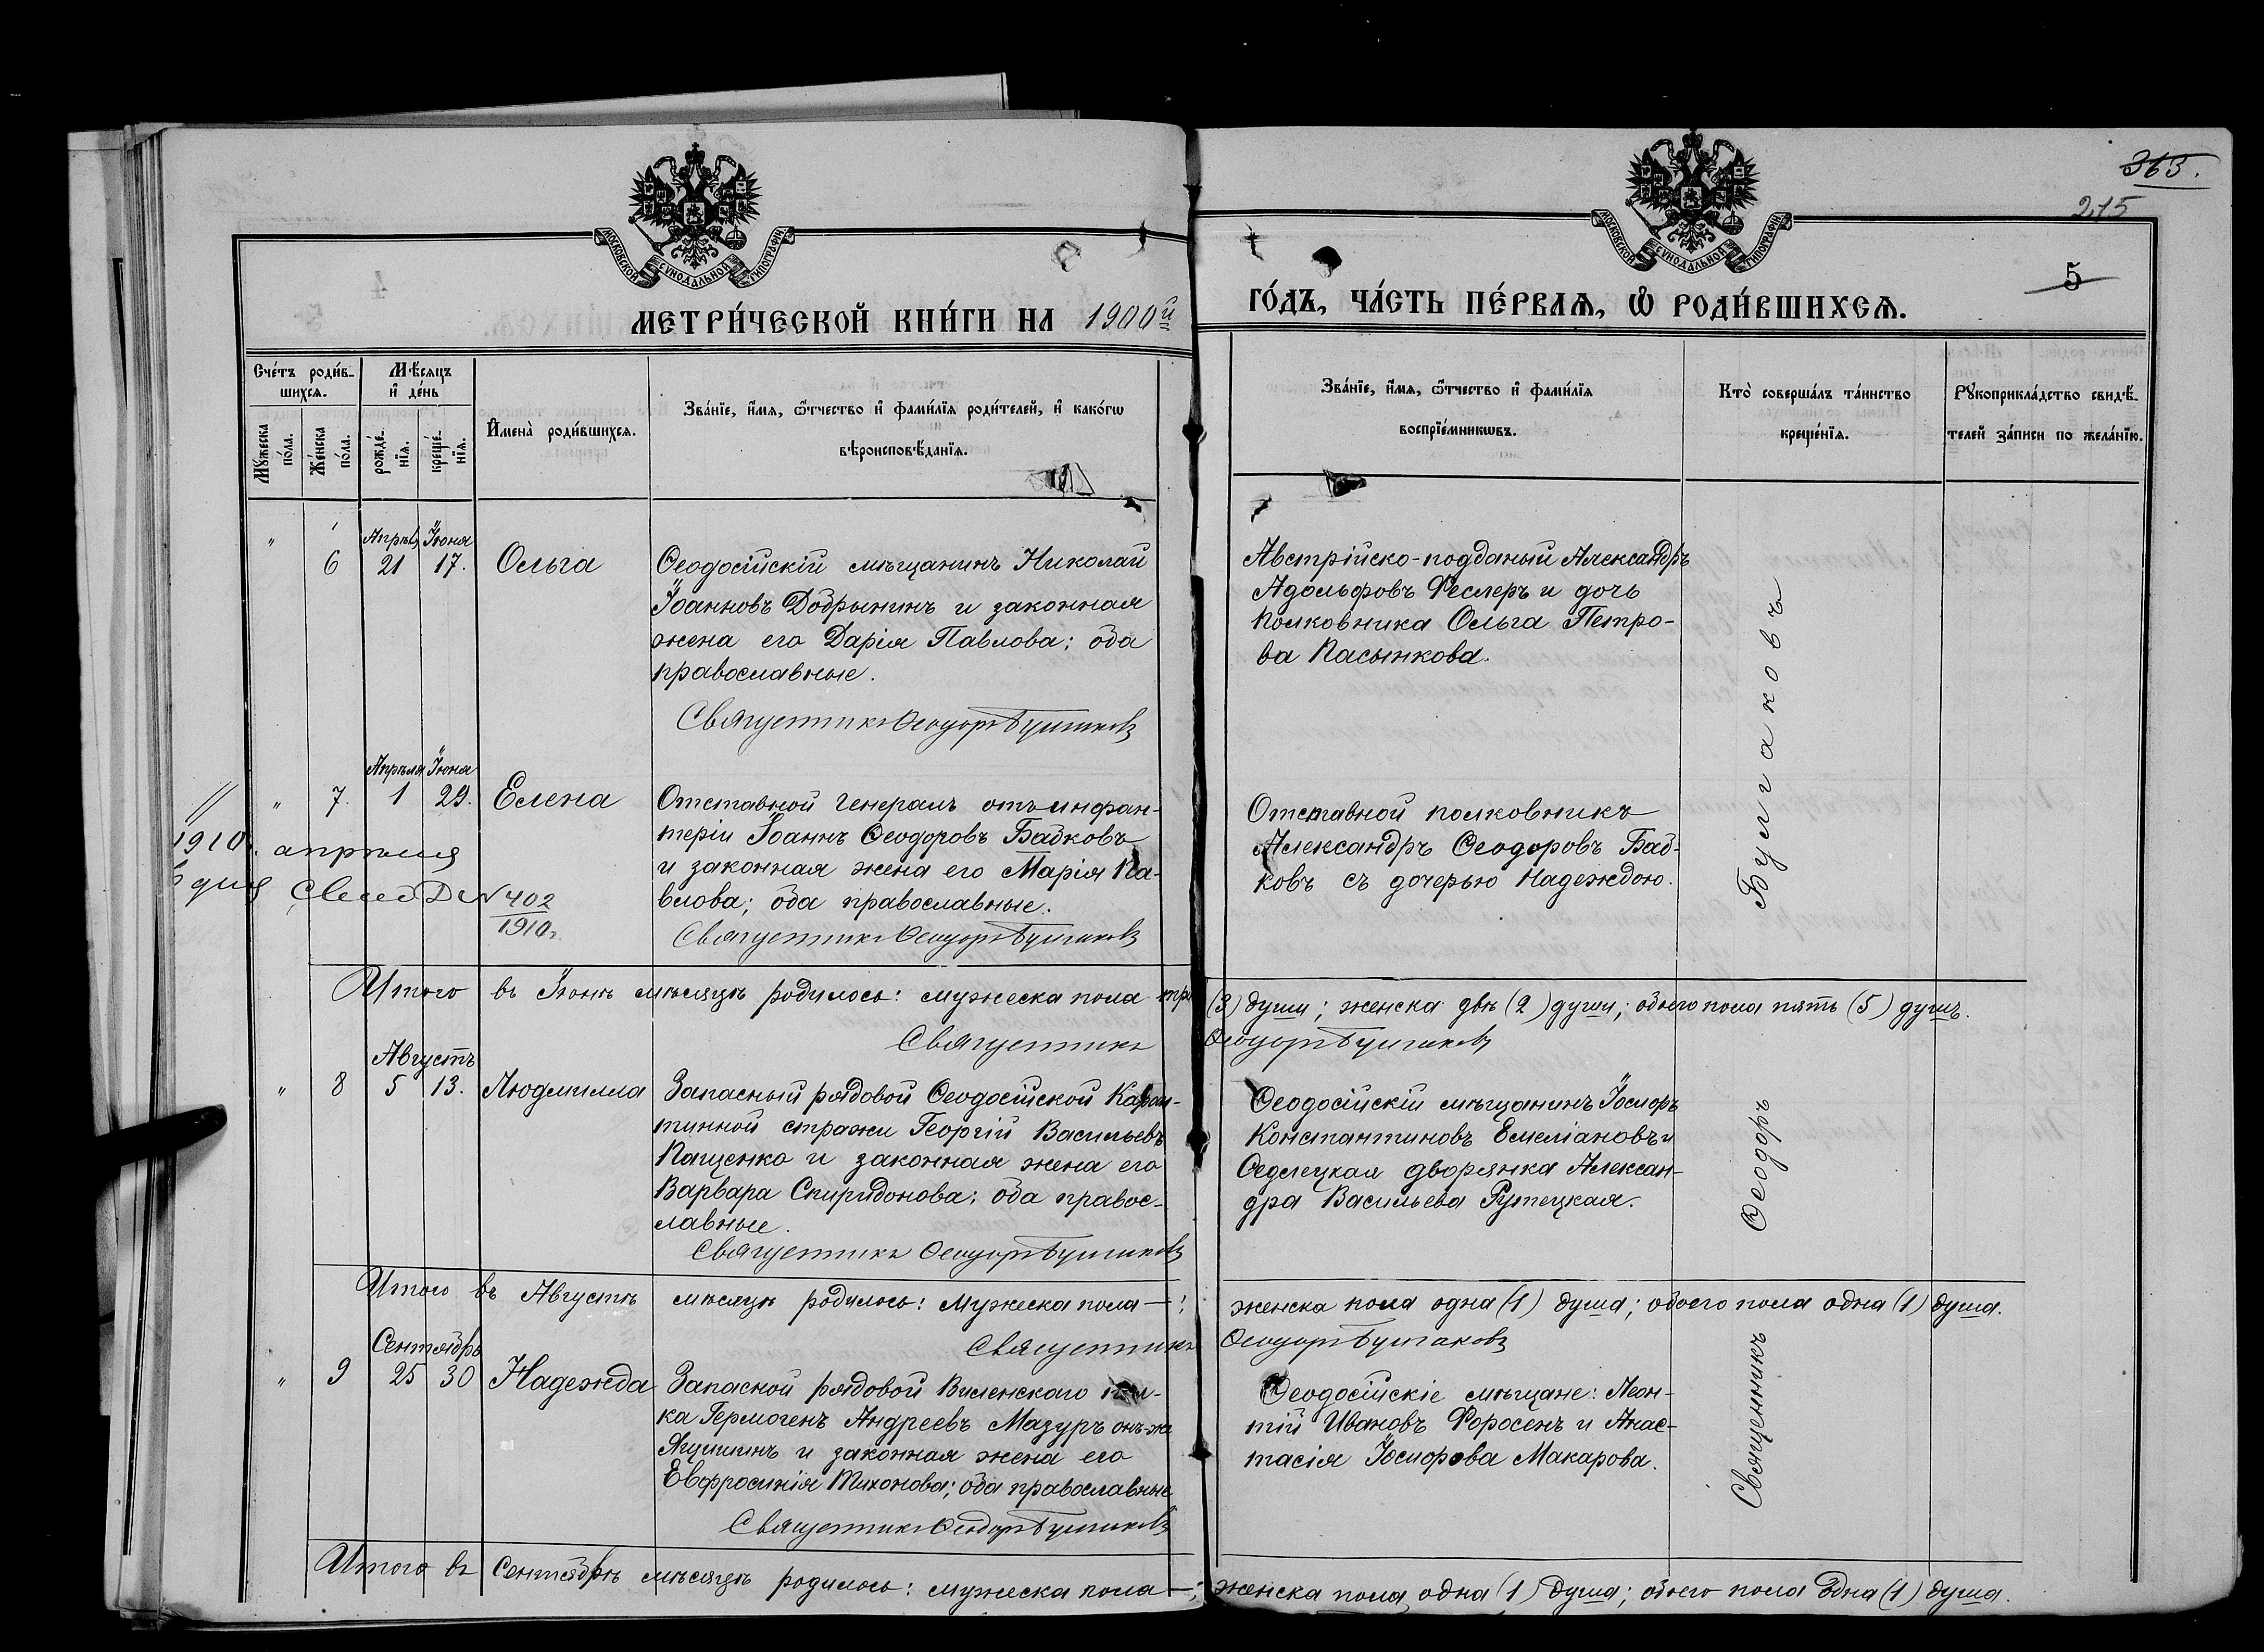 363.
215
5
МОСКОВСКОЙ СѴНОДАЛЬНОЙ ТИПОГРАФІИ
МОСКОВСКОЙ СѴНОДАЛЬНОЙ ТИПОГРАФІИ
МЕТРИ́ЧЕСКОЙ КНИ́ГИ НА 1900й
ГО́ДЪ, ЧА́СТЬ ПЕ́РВАѦ, Ѡ РОДИ́ВШИХСѦ.
Сче́тъ роди́в-
шихсѧ.
Мѣ́сяцъ
и де́нь
Мꙋ́жеска
по́ла.
Же́нска
по́ла.
рожде́-
нїѧ.
креще́-
нїѧ.
Имена̀ роди́вшихсѧ.
Зва́нїе, и́мѧ, ѻ҆́тчество и фами́лїѧ роди́телей, и како́гѡ
вѣроисповѣ́данїѧ.
Зва́нїе, и́мѧ, ѻ҆́тчество и фами́лїѧ
воспрїе́мникѡвъ.
Кто̀ соверша́лъ та́инство
креще́нїѧ.
Рꙋкоприкла́дство свидѣ́-
телей за́писи по жела́нїю.
" 6 Апрѣль 21 Іюня 17. Ольга
Ѳеодосійскій мѣщанинъ Николай
Іоанновъ Добрынинъ и законная
жена его Дарія Павлова; оба
православные.
Священникъ Ѳеодоръ Булгаковъ
Австрійско-подданый Александръ
Адольфовъ Феслеръ и дочь
полковника Ольга Петро-
ва Пасынкова.
" 7. Апрѣля 1 Іюня 29. Елена
Отставной генералъ отъ инфан-
теріи Іоаннъ Ѳеодоровъ Бабковъ
и законная жена его Марія Па-
влова; оба православные.
Священникъ Ѳеодоръ Булгаковъ
Отставной полковникъ
Александръ Ѳеодоровъ Баб-
ковъ съ дочерью Надеждою.
1910. апрѣля
дня
№ 402
1910г.
Итого въ Іюнѣ мѣсяцѣ родилось: мужеска пола три (3) души; женска двѣ (2) души; обоего пола пять (5) душъ.
Священникъ Ѳеодоръ Булгаковъ
" 8 Августъ 5 13. Людмилла
Запасный рядовой Ѳеодосійской Каран-
тинной стражи Георгій Васильевъ
Пащенко и законная жена его
Варвара Спиридонова; оба правос-
лавные.
Священникъ Ѳеодоръ Булгаковъ
Ѳеодосійскій мѣщанинъ Іосифъ
Константиновъ Емеліановъ и
Седлецкая дворянка Алексан-
дра Васильева Рутецкая.
Итого въ Августѣ мѣсяцѣ родилось: мужеска пола —; женска пола одна (1) душа; обоего пола одна (1) душа.
Священникъ Ѳеодоръ Булгаковъ
" 9 Сентябрь 25 30 Надежда
Запасной рядовой Виленскаго пол-
ка Гермогенъ Андреевъ Мазуръ онъ-же
и законная жена его
Евфросинія Тихонова; оба православные
Священникъ Ѳеодоръ Булгаковъ
Ѳеодосійскіе мѣщане: Леон-
тій Ивановъ Форосенъ и Анас-
тасія Іосифова Макарова.
Священникъ Ѳеодоръ Булгаковъ
Итого въ Сентябрѣ мѣсяцѣ родилось: мужеска пола —; женска пола одна (1) душа; обоего пола одна (1) душа.